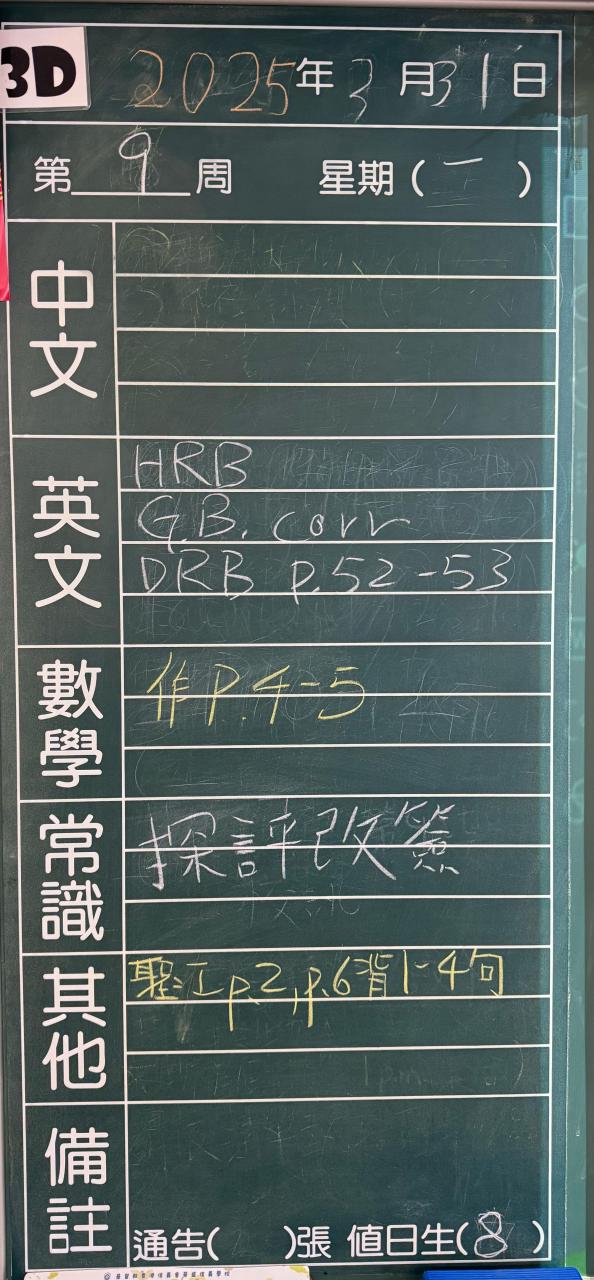 3D
2025年3月31日
第9周 星期(一)
中文
英文
HRB
G.B. corr
DRB p.52-53
數學
作P.4-5
常識
探評改簽
其他
p.2, p.6背1-4句
備註
通告( )張 值日生(8)